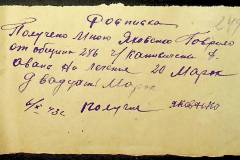 Росписка
Получено мною Яковенко Гаврило
от общины 286 г/ Каниковская
аванс на лечения 20 марок
Двадцать Марок
6/XI 43 г. получил Яковенко